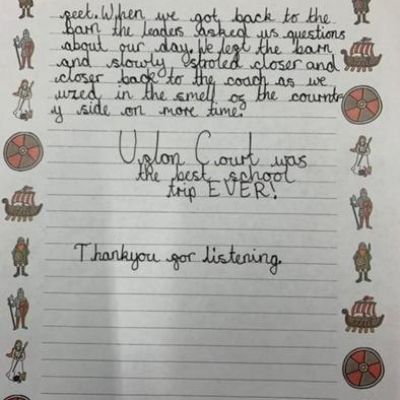 feet. When we got back to the
barn the leaders asked us questions
about our day. We left the barn
and slowly stroled closer and
closer back to the coach as we
in the smell of the countr
y side on more time.
Uslon Court was
the best school
trip EVER!
Thankyou for listening.